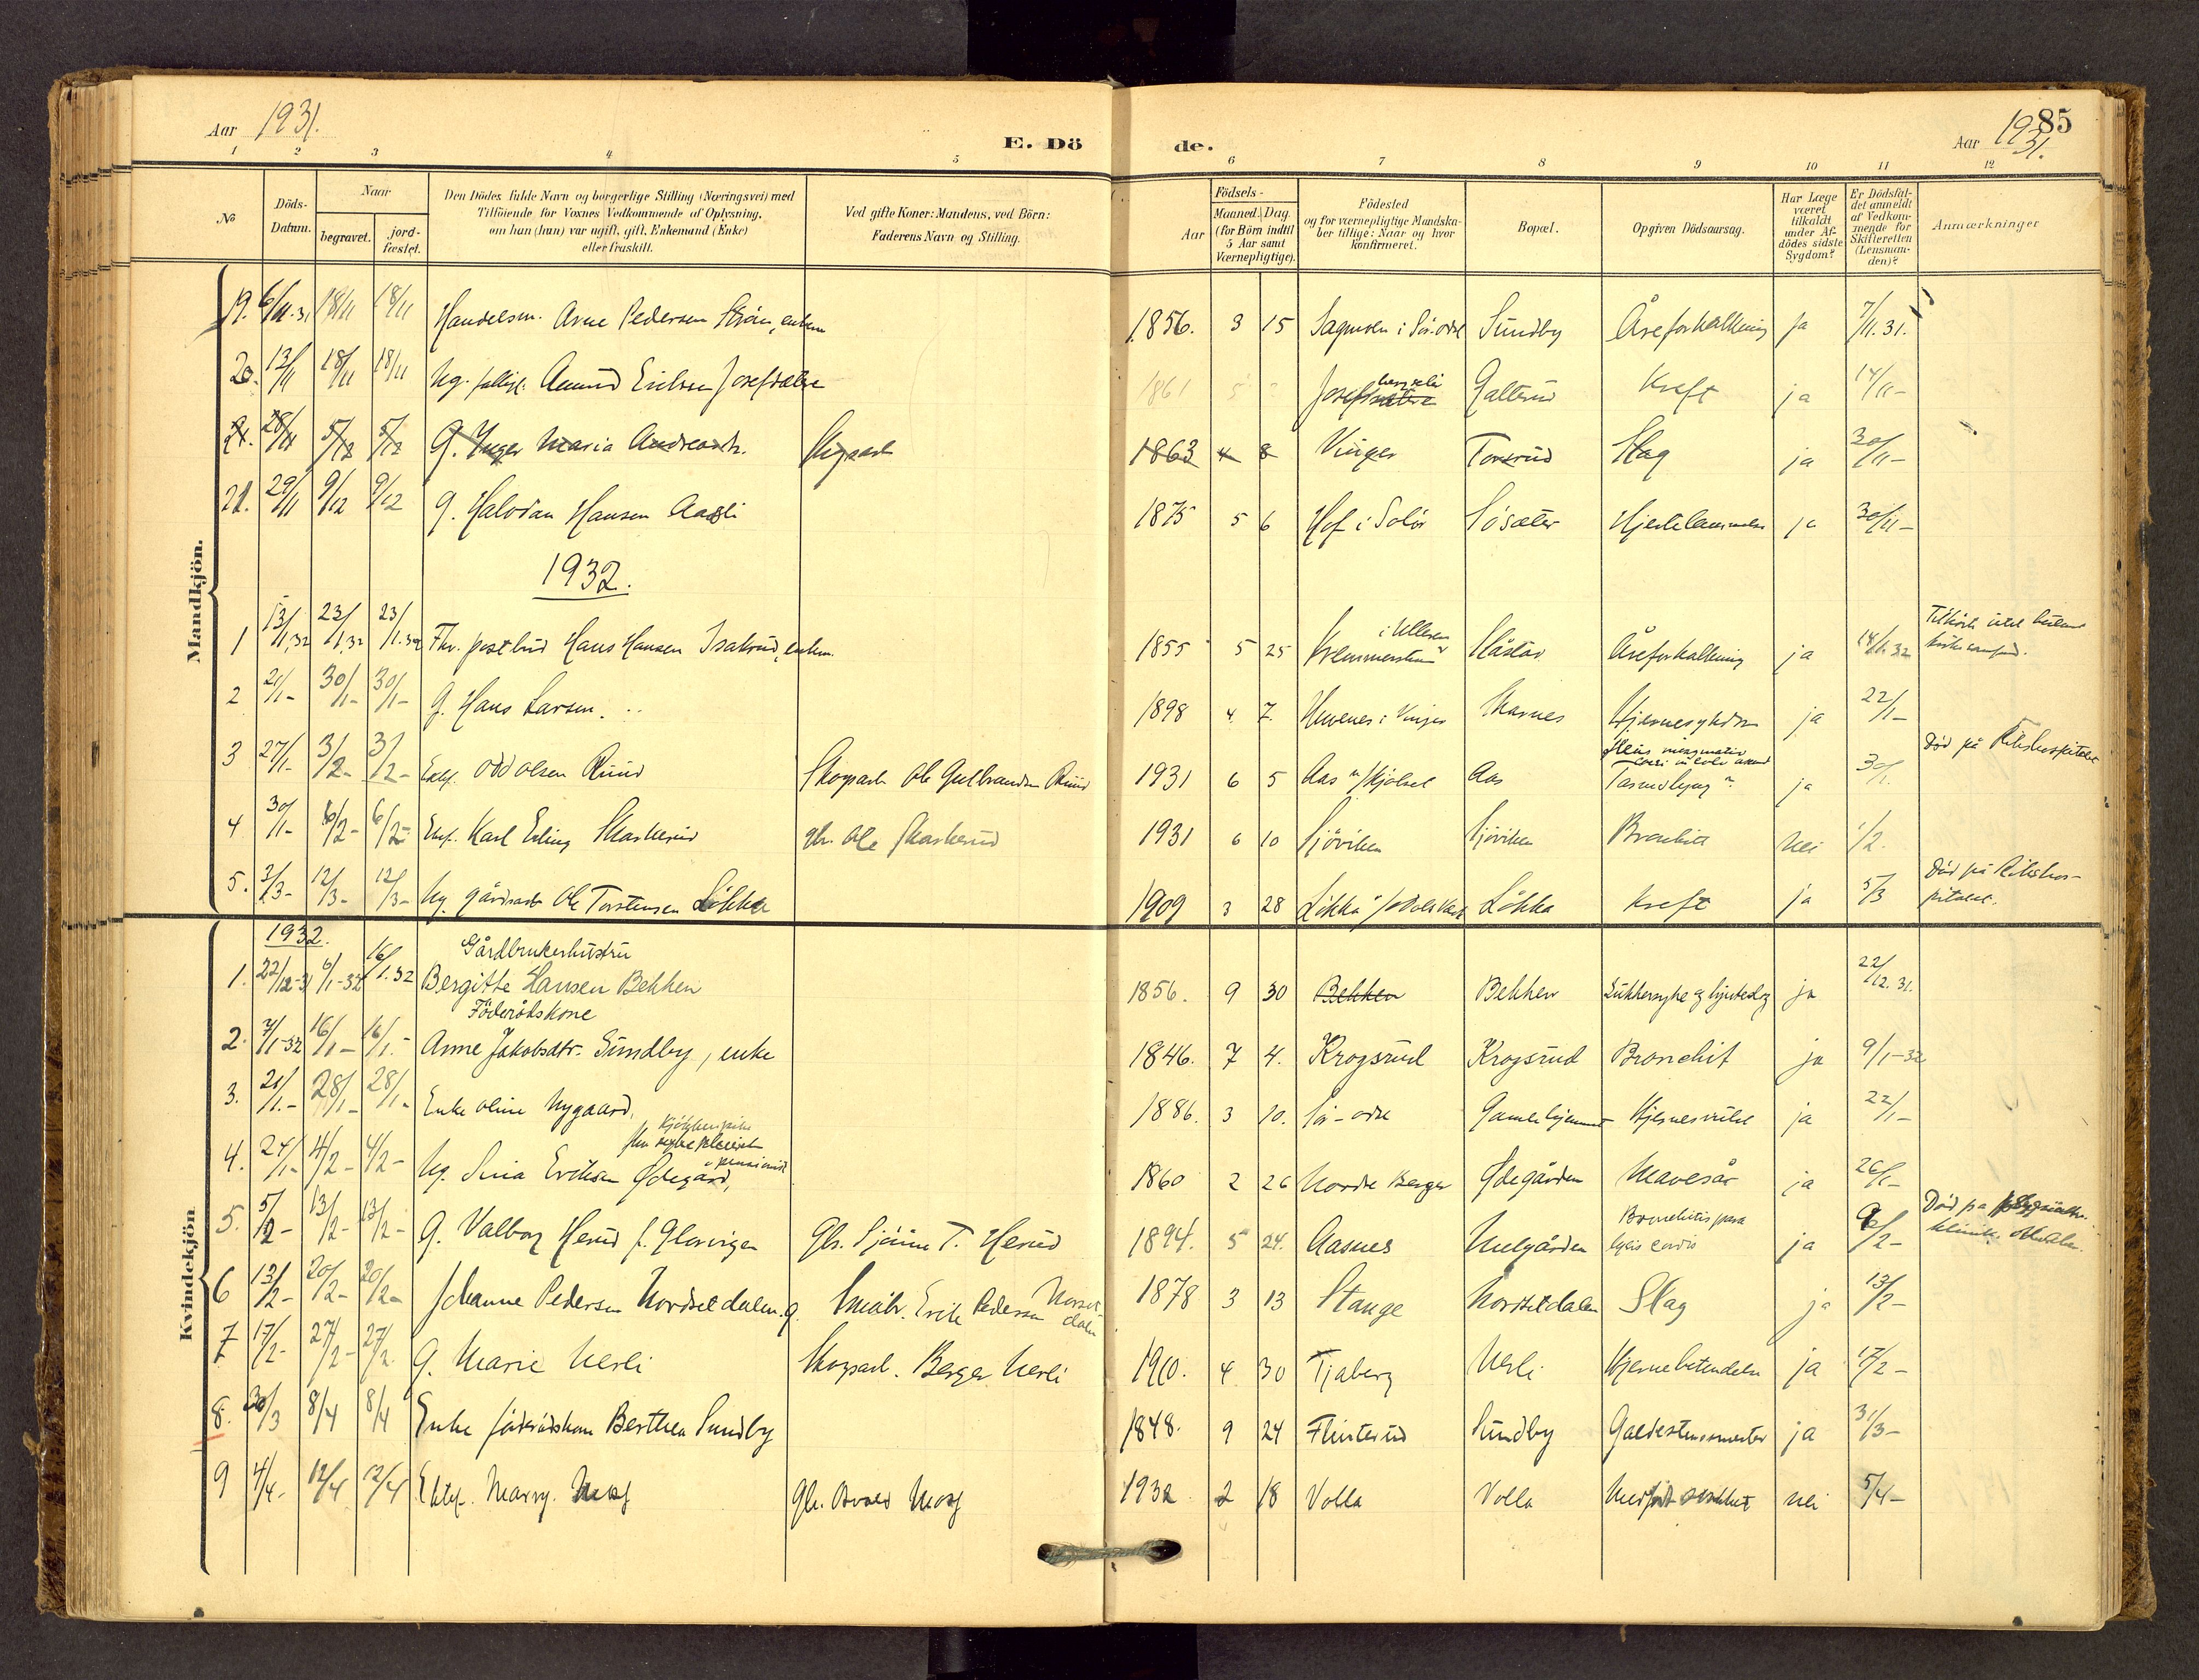 Aar 1931.
E. Dö
de.
85
Aar 1931.
1 2 3 4 5 6 7 8 9 10 11 12
No
Döds-Datum.
Naar
begravet.
jord-fæstet.
Den Dödes fulde Navn og borgerlige Stilling (Næringsvei) med
Tilföiende for Voxnes Vedkommende af Oplysning,
om han (hun) var ugift, gift, Enkemand (Enke)
eller fraskilt.
Ved gifte Koner: Mandens, ved Börn:
Faderens Navn og Stilling.
Födsels-
Aar
Maaned. Dag.
(for Börn indtil
5 Aar samt
Værnepligtige).
Födested
og for værnepligtige Mandska-
ber tillige: Naar og hvor
konfirmeret.
Bopæl.
Opgiven Dödsaarsag.
Har Læge
været
tilkaldt
under Af-
dödes sidste
Sygdom?
Er Dödsfal-
det anmeldt
af Vedkom-
mende for
Skifteretten
(Lensman-
den)?
Anmærkninger
Mandkjön.
19. 6/11.31 18/11 18/11 Handelsm. Arne Pedersen enkem 1856. 3 15 Sagmoen i Sör-odal Sundby Åreforkalkning ja 7/11.31.
20. 13/11 18/11 18/11 Ug. Amund Eriksen Josefsætre 1861 5 Galterud Kreft ja 14/11-
21. 28/11 5/12 5/12 G. Inger Maria Andreasdtr. Skogsarb 1863 4 8 Vinger Torsrud Slag ja 30/11-
21. 29/11 9/12 9/12 G. Halvdan Hansen Aasli 1875 5 6 Hof i Solör Sösæter Hjertelammelse ja 30/11-
1932.
1 13/1.32 23/1.32 23/1.32 Fhv. postbud Hans Hansen Isakrud, enkem. 1855 5 25 i Ullern Slåstad Åreforkalkning ja 14/1.32
2 21/1- 30/1- 30/1- G. Hans Larsen. 1898 4 7. i Vinger Skarnes Hjernesykdom ja 22/1-
3 27/1- 3/2- 3/2- Ektef. Odd Olsen Ruud Skogsarb Ole Gulbrandsen Ruud 1931 6 5 Aas Aas ja 30/1. Död på Rikshospitalet
4 30/1- 6/2- 6/2- Ektf. Karl Erling Skarkerud gbr. Ole Skarkerud 1931 6 10 Sjöviken Sjöviken Bronkitt nei 1/2.
5. 3/3- 12/3- 12/3- Ug. gårdsarb Ole Torstensen Lökka 1909 3 28 Lökka Lökka kreft ja 5/3 Död på Rikshos-
pitalet.
Kvindekjön
1932.
1. 22/12-31 6/1-32 16/1.32 Gårdbrukerhustru
Bergitte Hansen Bekken 1856. 9 30 Bekken Bekken Sukkersyke og ja 22/12.31.
2. 7/1-32 16/1- 16/1.- Föderådskone
Anne Jakobsdtr. Sundby, enke 1846. 7 4. Krogsrud Krogsrud Bronchit ja 9/1-32
3. 21/1.- 28/1- 28/1- Enke Oline Nygaard. 1886. 3 10. Sör-odal Gamlehjemmet ja 22/1-
4. 24/1- 4/2- 4/2- Ug. Eriksen Ødegård, 1860 2 26 Nordre Berger Ødegården Mavesår ja 26/1-
5. 5/2- 13/2- 13/2- G. Valborg Herud f. Glorvigen Gbr. T. Herud 1894. 5 24. Aasnes Bronchitis para
lysis cordis ja 6/2- Död på
6 13/2- 20/2- 20/2- Johanne Pedersen Nordsetdalen. g. Småbr. Erik Pedersen 1878 3 13 Stange Nordsetdalen Slag ja 13/2-
7 17/2- 27/2- 27/2. G. Marie Nerli Skogsarb. Berger Nerli 1910. 4 30 Tjaberg Nerli Hjernebetendelse ja 17/2-
8. 30/3 8/4 8/4 Enke föderådskone Berthea Sundby 1848. 9 24 Flinterud Sundby Galdestenssmerter ja 31/3-
9 4/4- 12/4 12/4 Ektef. Marry. Gbr. 1932 2 18 Volla Volla Medfödt svakhet nei 5/4-